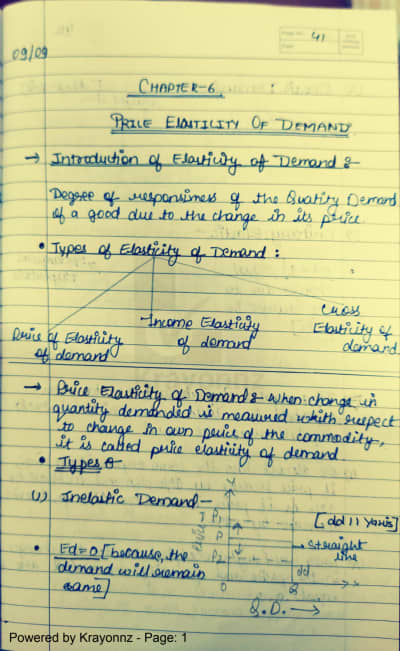 Page No. 41
Date
09/09
CHAPTER-6.
PRICE ELASTILITY OF DEMAND
→ Introduction of Elasticity of Demand :-
Degree of responsiness of the Quatity Demand
of a good due to the change in its price
• Types of Elasticity of Demand :
Price of Elasticity
of demand
Income Elasticity
of demand
Cross
Elasticity of
demand
→ Price Elasticity of Demand :- When change in
quantity demanded is measured whith respect
to change in own price of the commodity,
it is called price elasticity of demand
• Types :-
(i) Inelastic Demand -
[dd || Yaxis]
P1
P
P2
→ straight
line
dd
• Ed=0 [because, the
demand will remain
same]
O
Q
x
Q.D. →
Powered by Krayonnz - Page: 1